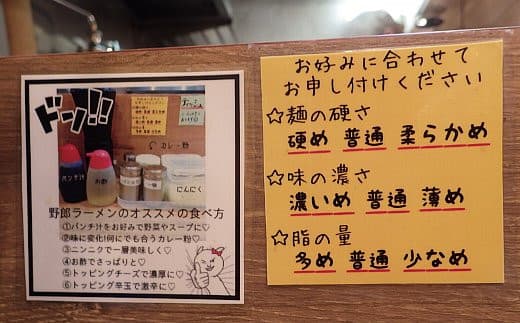 ドーン!!
カレー粉
パンチ汁
お酢
にんにく
野郎ラーメンのオススメの食べ方
①パンチ汁をお好みで野菜やスープに♡
②味に変化!何にでも合うカレー粉♡
③ニンニクで一層美味しく♡
④お酢でさっぱりと♡
⑤トッピングチーズで濃厚に♡
⑥トッピング辛玉で激辛に♡
お好みに合わせて
お申し付けください
☆麺の硬さ
硬め 普通 柔らかめ
☆味の濃さ
濃いめ 普通 薄め
☆脂の量
多め 普通 少なめ